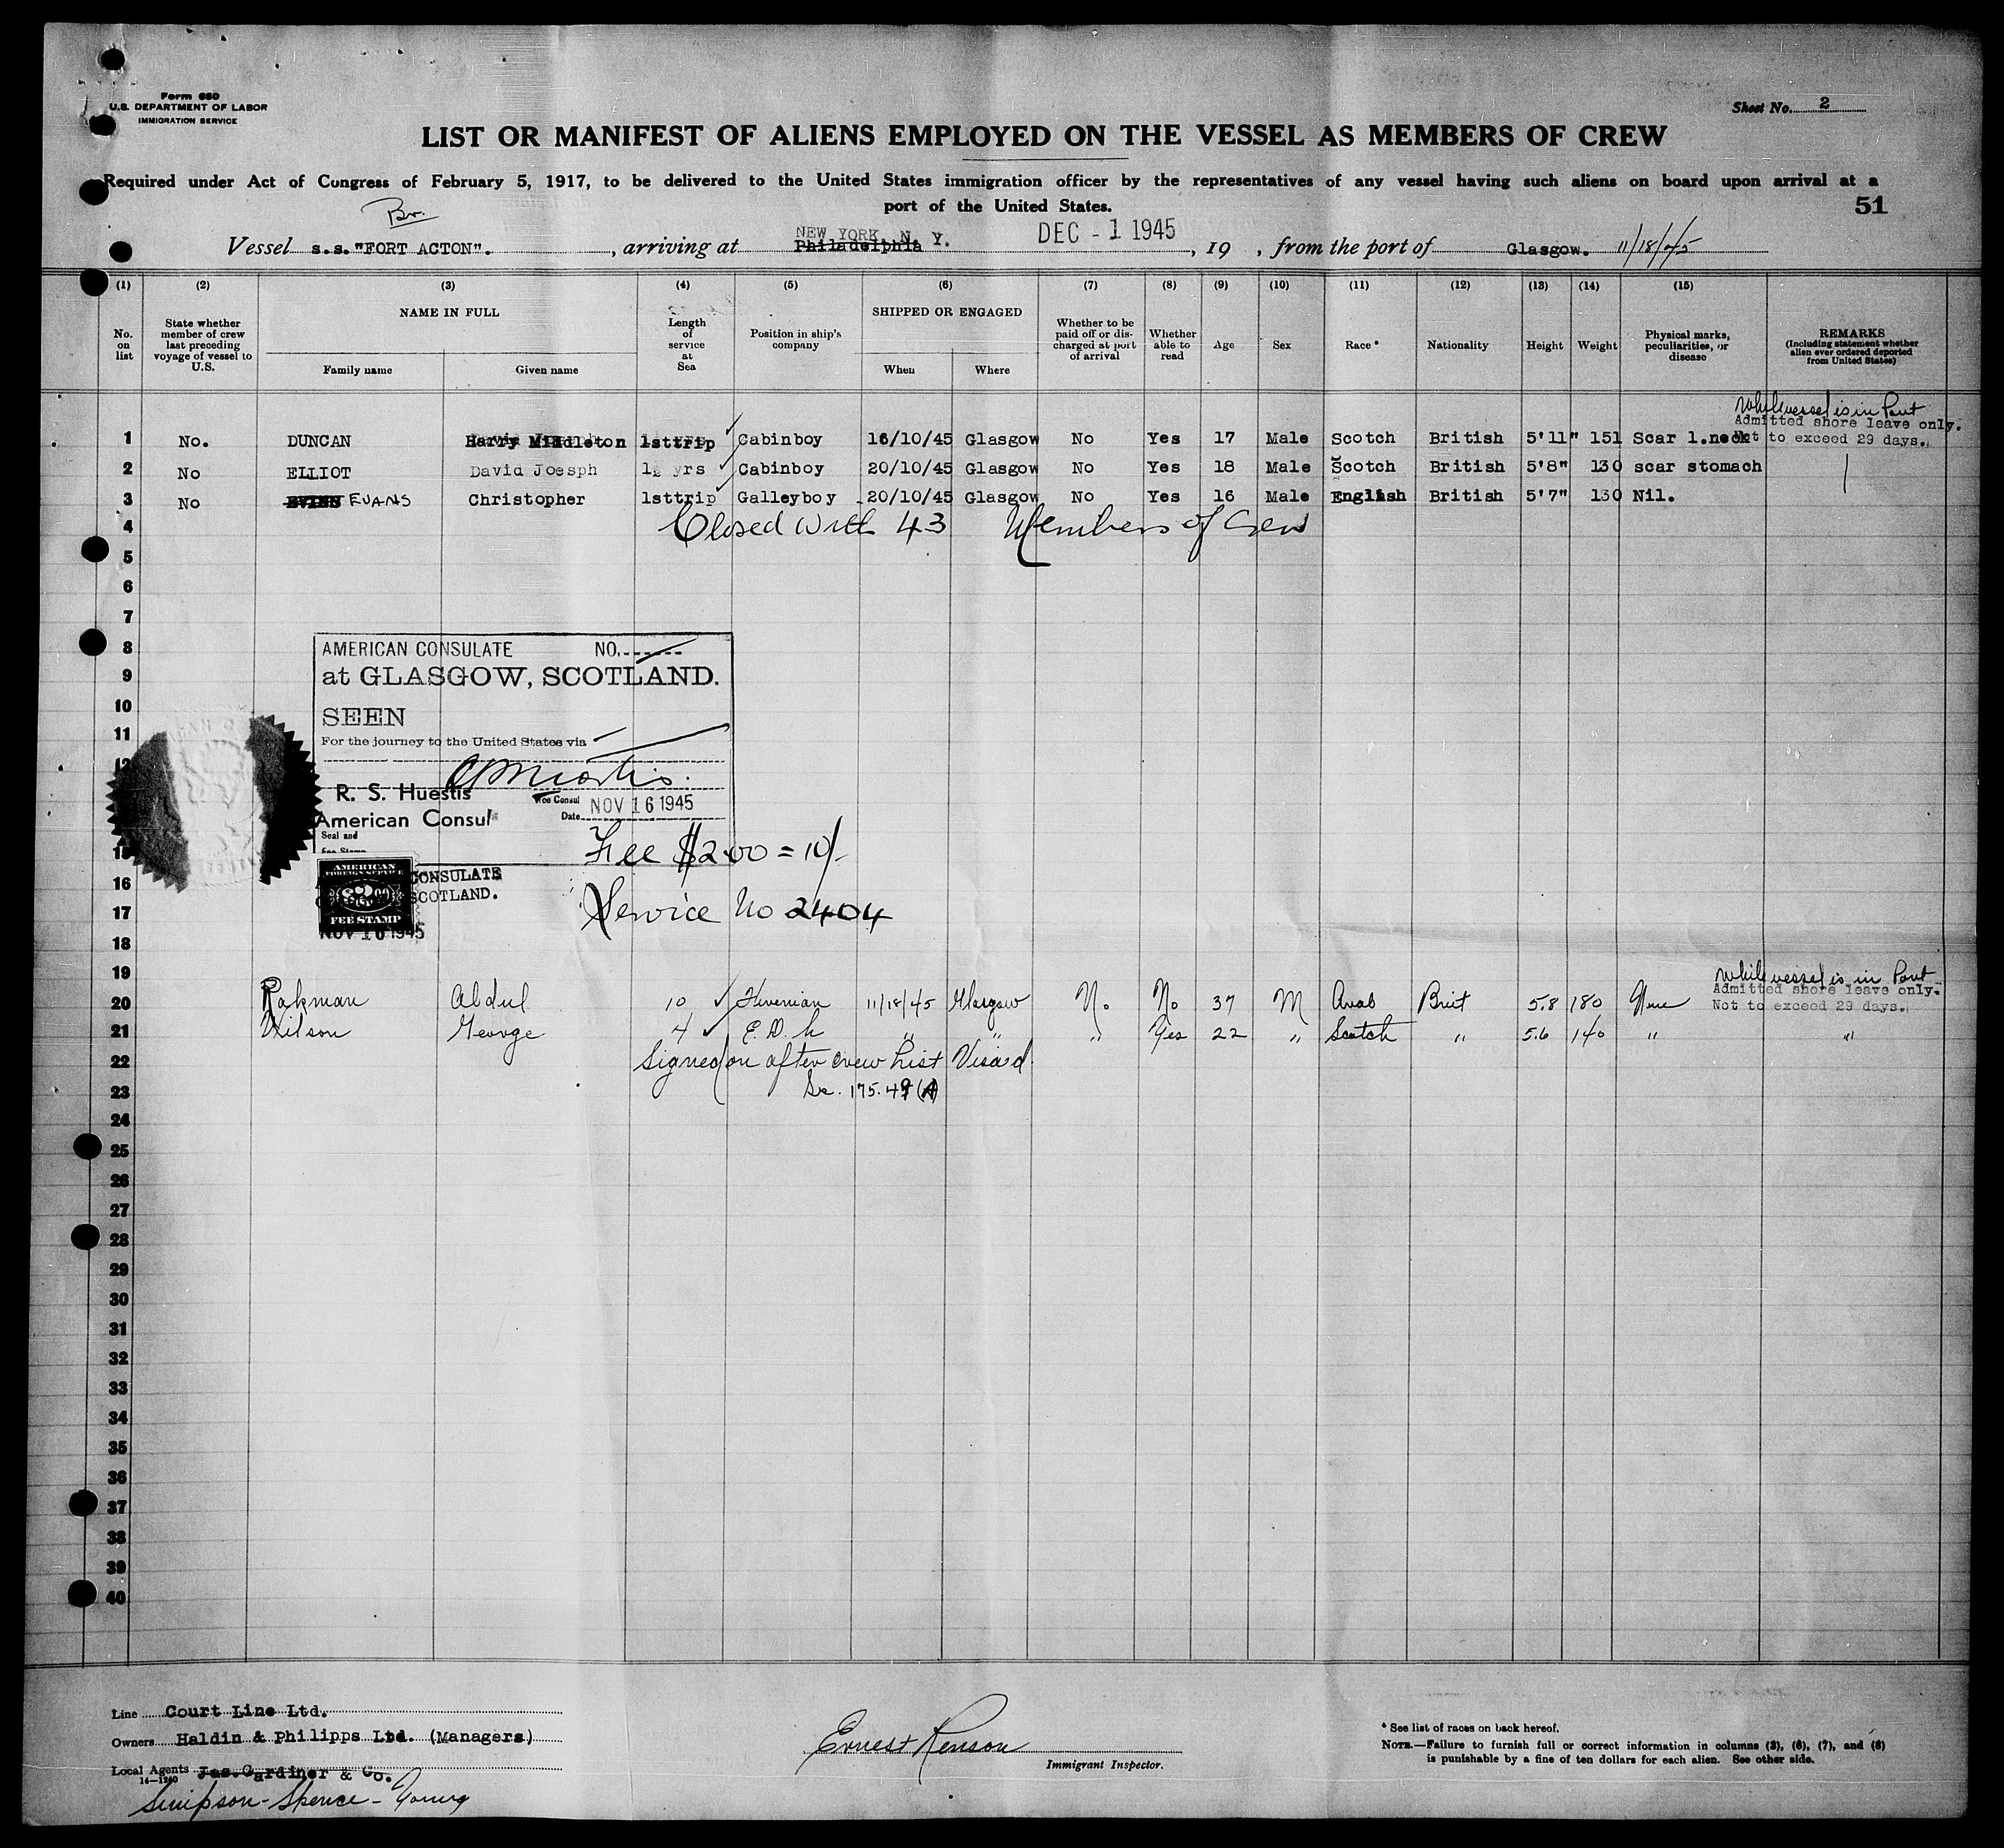 Form 680
U.S. DEPARTMENT OF LABOR
IMMIGRATION SERVICE
Sheet No. 2
LIST OR MANIFEST OF ALIENS EMPLOYED ON THE VESSEL AS MEMBERS OF CREW
Required under Act of Congress of February 5, 1917, to be delivered to the United States immigration officer by the representatives of any vessel having such aliens on board upon arrival at a
port of the United States.
51
Br.
Vessel s.s. "FORT ACTON". , arriving at Philadelphia NEW YORK, N. Y. DEC - 1 1945 , 19 , from the port of Glasgow. 11/18/45
(1) (2) (3) (4) (5) (6) (7) (8) (9) (10) (11) (12) (13) (14) (15)
No. on list
State whether member of crew last preceding voyage of vessel to U.S.
NAME IN FULL
Family name Given name
Length of service at Sea
Position in ship's company
SHIPPED OR ENGAGED
When Where
Whether to be paid off or discharged at port of arrival
Whether able to read
Age
Sex
Race *
Nationality
Height
Weight
Physical marks, peculiarities, or disease
REMARKS
(Including statement whether alien ever ordered deported from United States)
While vessel is in Port
Admitted shore leave only.
Not to exceed 29 days.
1 No. DUNCAN Harry Middleton 1sttrip Cabinboy 16/10/45 Glasgow No Yes 17 Male Scotch British 5'11" 151 Scar l.neck
2 No ELLIOT David Joesph 1½ yrs Cabinboy 20/10/45 Glasgow No Yes 18 Male Scotch British 5'8" 130 scar stomach
3 No EVANS Christopher 1sttrip Galleyboy 20/10/45 Glasgow No Yes 16 Male English British 5'7" 130 Nil.
4 Closed with 43 Members of Crew
5
6
7
8
9
10
11
12
15
16
17
18
19
AMERICAN CONSULATE NO.
at GLASGOW, SCOTLAND.
SEEN
For the journey to the United States via
R. S. Huestis
American Consul
Vice Consul
Date NOV 16 1945
Seal and
Fee Stamp
Fee $2.00 = 10/-
AMERICAN
FEE STAMP
CONSULATE
SCOTLAND.
NOV 16 1945
Service No 2404
While vessel is in Port
Admitted shore leave only.
Not to exceed 29 days.
20 Rahman Abdul 10 Fireman 11/18/45 Glasgow No No 37 M Arab Brit 5.8 180 None
21 Wilson George 4 E.D.H " " " Yes 22 " Scotch " 5.6 140 " "
22 Signed on after crew List Visa'd
23 Sec. 175.49 (A)
24
25
26
27
28
29
30
31
32
33
34
35
36
37
38
39
40
Line Court Line Ltd.
Owners Haldin & Philipps Ltd. (Managers)
Local Agents Jas. Gardiner & Co.
14-1240
Simpson - Spence - Young
Ernest Renson
Immigrant Inspector.
* See list of races on back hereof.
NOTE.—Failure to furnish full or correct information in columns (3), (6), (7), and (8)
is punishable by a fine of ten dollars for each alien. See other side.